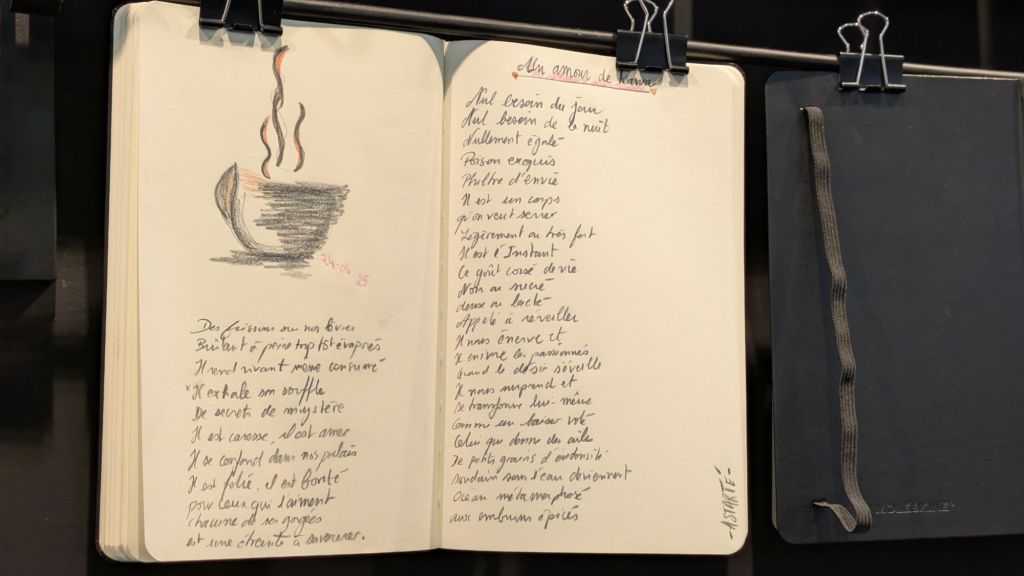 24-04-25
Des frissons sur nos lèvres
Brûlant à peine trop tôt évaporés
Il rend vivant même consumé
Il exhale son souffle
De secrets de mystère
Il est caresse, il est amer
Il se confond dans nos palais
Il est folié, il est bonté
pour ceux qui l'aiment
chacune de ses gorgées
est une étreinte à savourer.
Un amour de Kawa
Nul besoin du jour
Nul besoin de la nuit
Nullement égalé
Poison exquis
Philtre d'envie
Il est un corps
qu'on veut serrer
Légèrement ou très fort
Il est l'Instant
Ce goût corsé de vie
Noir ou sucré
dense ou lacté
Appelé à réveiller
Il nous énerve et
Il enivre les passionnés
Quand le désir s'éveille
Il nous surprend et
se transforme lui-même
Comme un baiser volé
Celui qui donne des ailes
De petits grains d'intensité
soudain sous l'eau deviennent
Océan métamorphosé
aux embruns épicés
-ASTARTÉ-
MOLESKINE